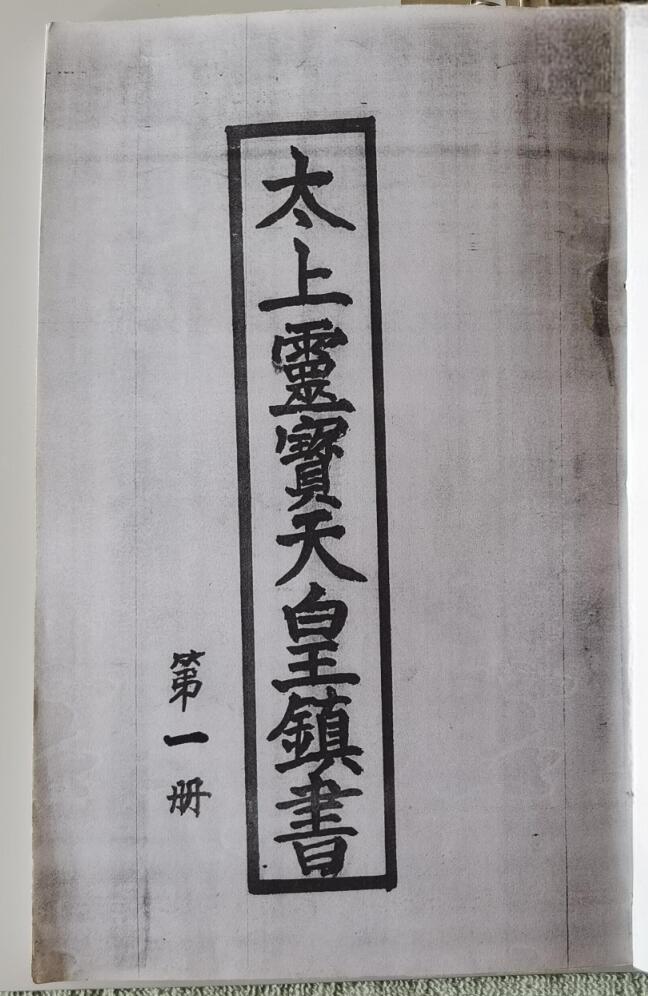 太上靈寶天皇鎮書
第一册